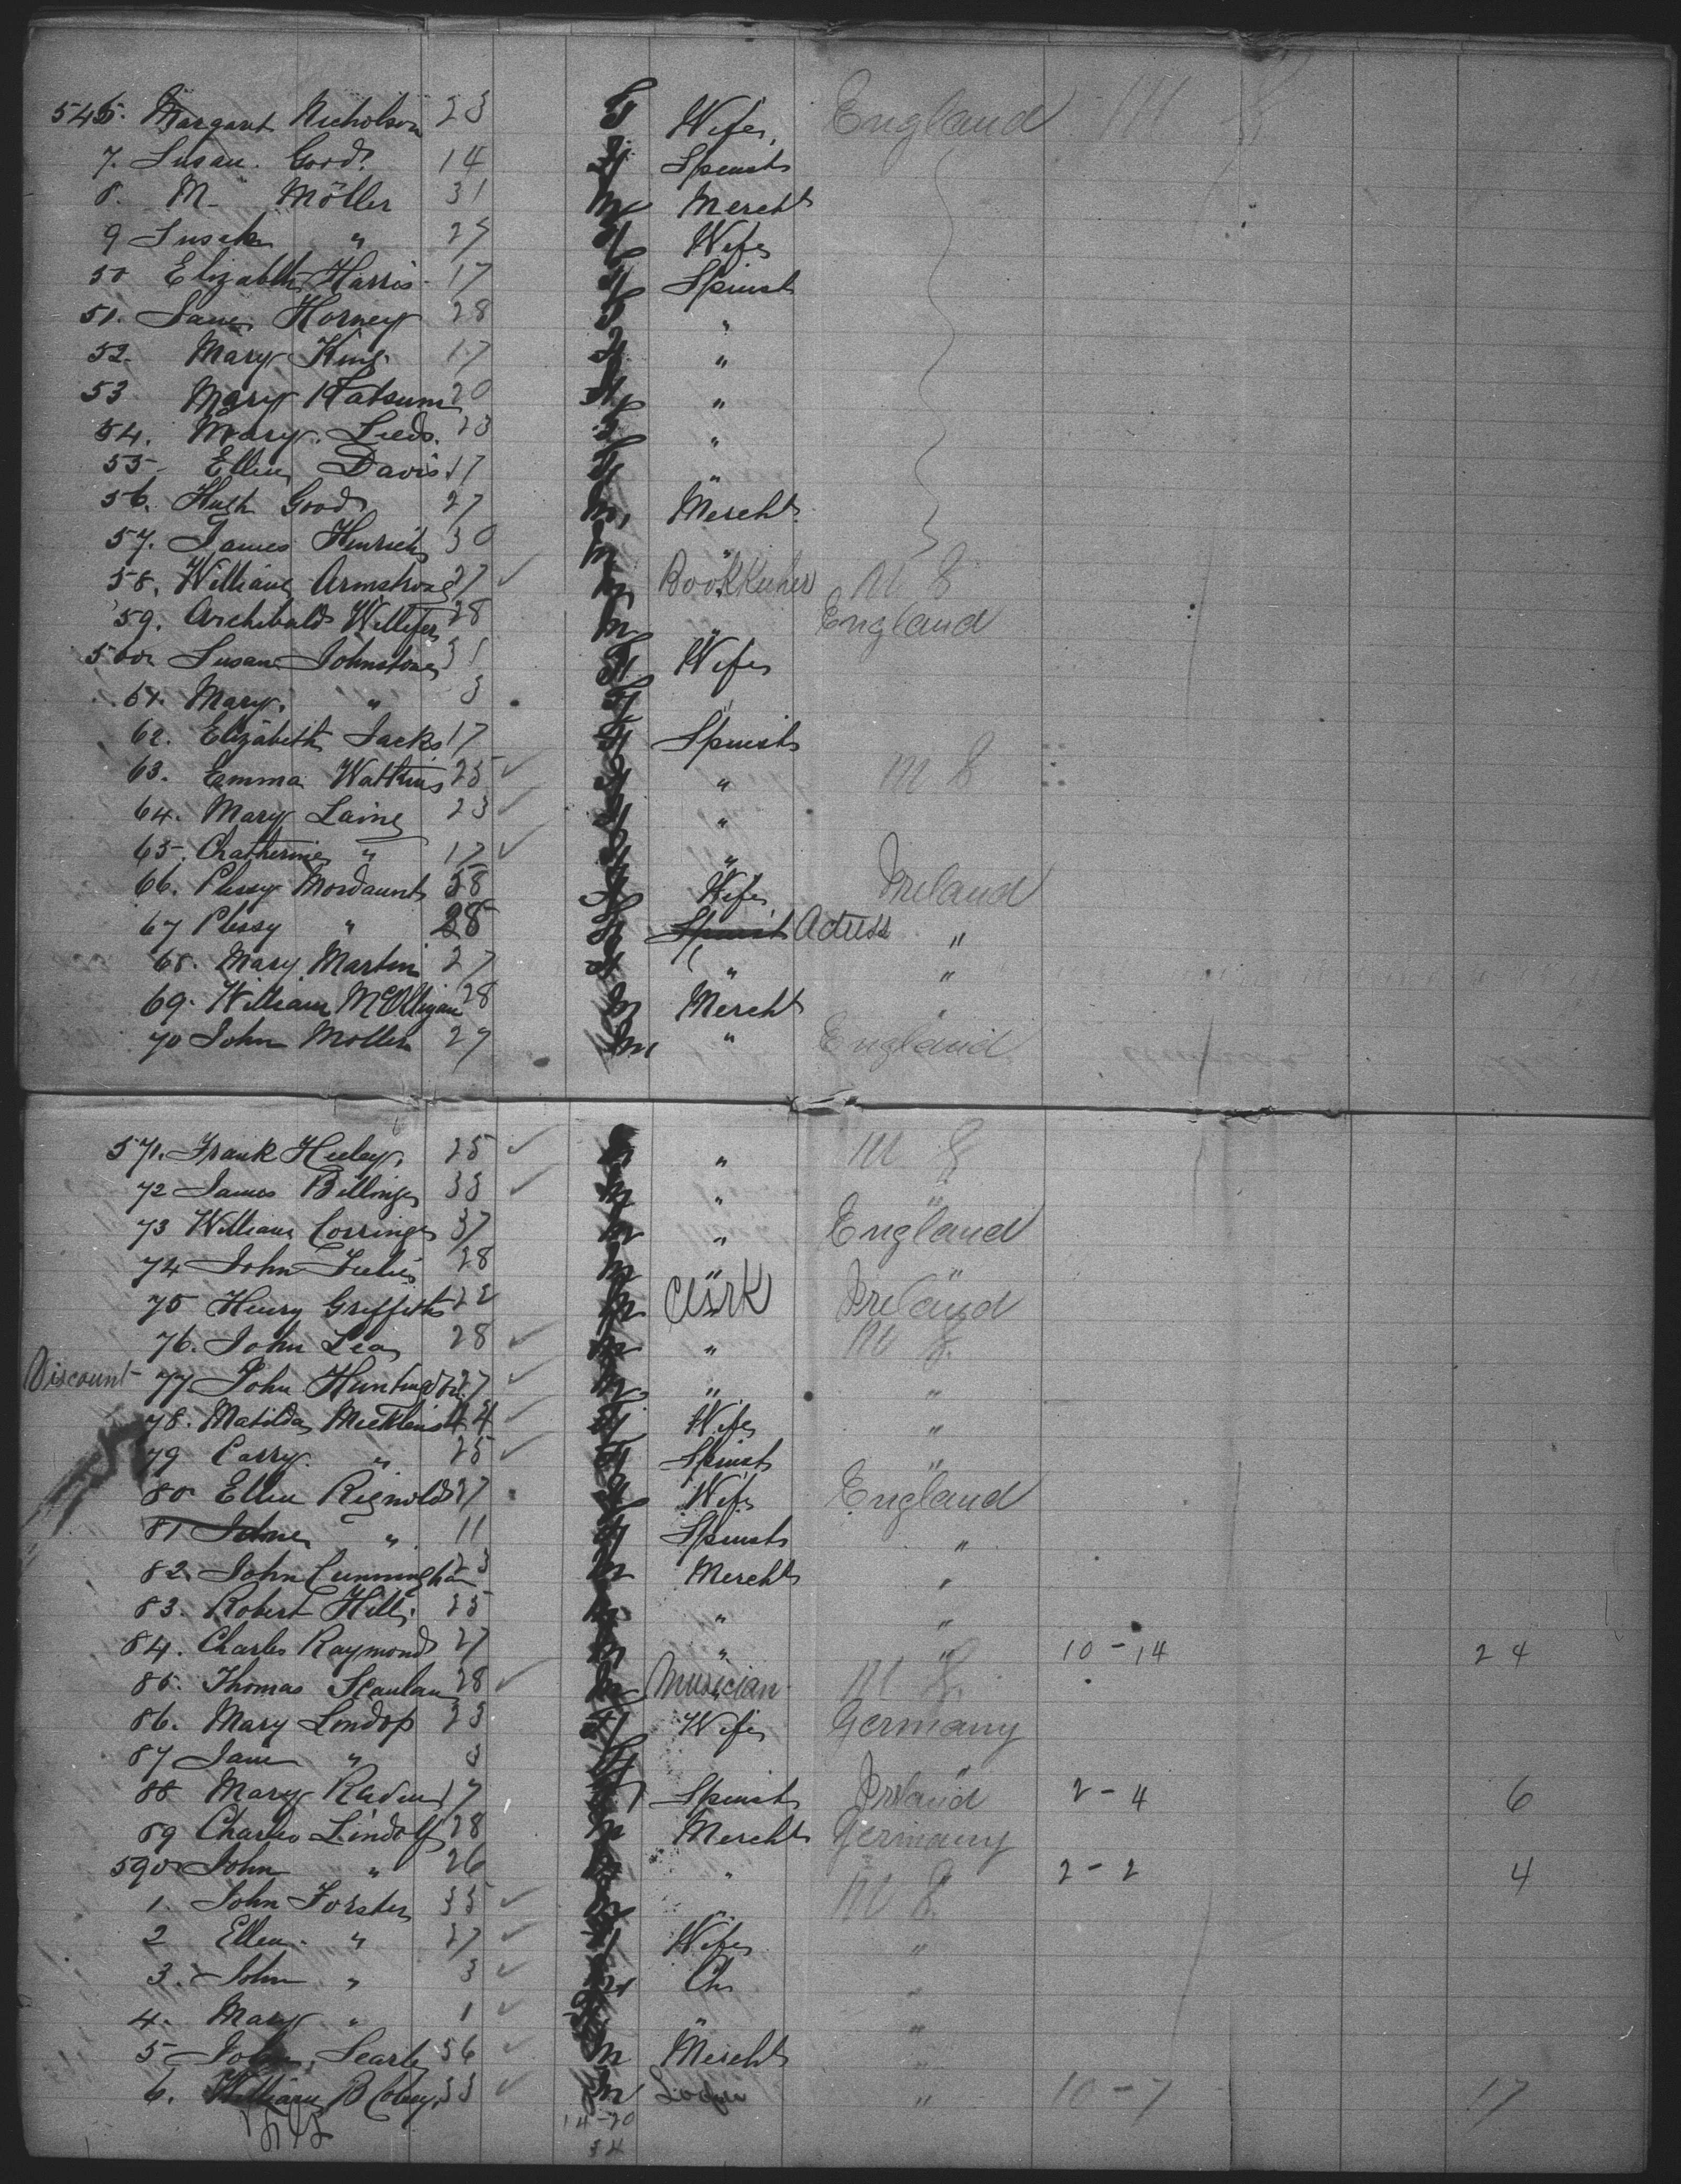 546. Margaret Nicholson 23 F Wife England
7. Susan Good 14 F Spinst
8. M. Möller 31 M Mercht
9 " 27 F Wife
50 Elizabeth Harris 17 F Spinst
51. Jane Horney 28 F "
52. Mary King 17 F "
53 Mary 20 F "
54. Mary Leeds. 23 F "
55. Ellen Davis 17 F "
56. Hugh Good 27 M Mercht
57. James Henrich 30 M "
58. William Armstrong 27 ✓ M Bookkeeper U S
59. Archibald 28 M " England
560. Susan Johnstone 31 F Wife
61. Mary. " 3 F "
62. Elizabeth Jacks 17 F Spinst
63. Emma Watkins 25 ✓ F " U S
64. Mary Laine 23 ✓ F "
65. Chatherine " 17 ✓ F "
66. Plessy Mordaunt 58 F Wife Ireland
67 Plessy " 28 F Spinst Actress "
68. Mary Martin 27 F " "
69. William 28 M Mercht "
70 John Moller 27 M " England
571. Frank Heeley. 25 ✓ M " U S
72 James Billinge 33 ✓ M " "
73 William Corringe 37 M " England
74 John 28 M " "
75 Henry Griffiths 22 M Clerk Ireland
76. John Lea 28 ✓ M " U S.
Discount 77 John Huntingdon 27 ✓ M " "
78. Matilda 44 ✓ F Wife "
79 Carry. " 25 ✓ F Spinst "
80 Ellen Rignold 27 F Wife England
81 " 11 F Spinst "
82. John Cunningham 23 M Mercht "
83. Robert Hill. 25 M " "
84. Charles Raymond 27 M " " 10-14 24
85. Thomas Scanlan 28 ✓ M Musician U S.
86. Mary Lindop 23 F Wife Germany
87 Jane " 3 F "
88 Mary 17 F Spinst Ireland 2-4 6
89 Charles Lindolf 28 M Mercht Germany
590 John " 26 M " 2-2 4
1. John Forster 35 ✓ M " U S.
2 Ellen. " 27 ✓ F Wife "
3. John " 3 ✓ M Ch "
4. Mary " 1 ✓ F " "
5 John Searle 36 ✓ M Mercht "
6. William B 33 ✓ M " 10-7 17
14-20
34